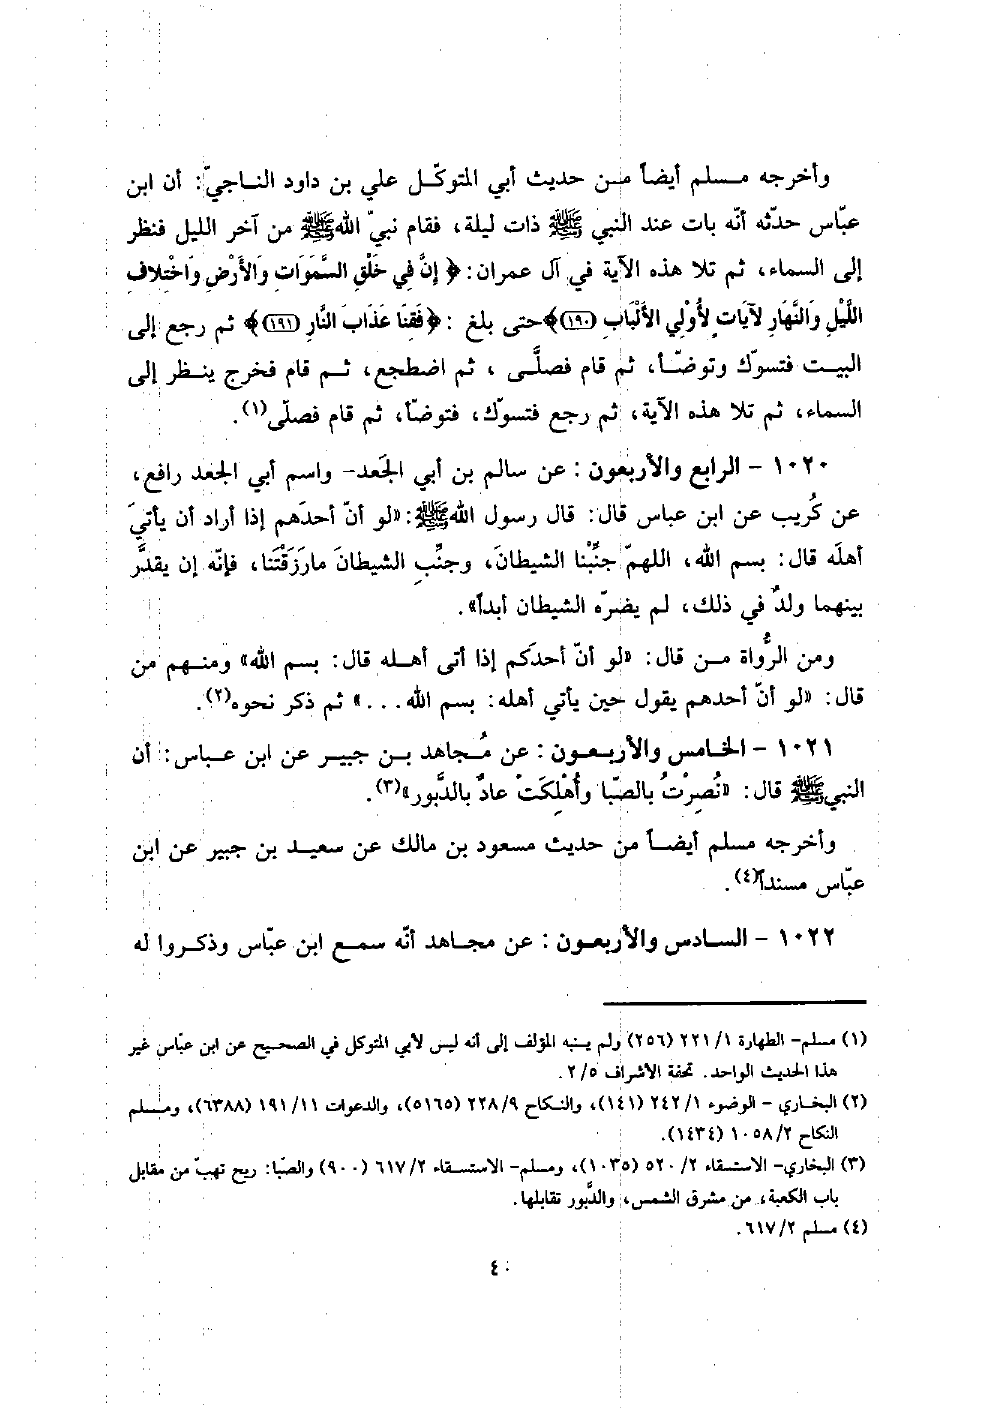 وأخرجه مسلم أيضاً من حديث أبي المتوكّل علي بن داود الناجيّ: أن ابن
عبّاس حدّثه أنّه بات عند النبي ﷺ ذات ليلة، فقام نبيّ الله ﷺ من آخر الليل فنظر
إلى السماء، ثم تلا هذه الآية في آل عمران: ﴿ إنَّ فِي خَلْقِ السَّمَوَاتِ وَالأَرْضِ وَاخْتِلافِ
اللَّيْلِ وَالنَّهَارِ لآيَاتٍ لأُولِي الأَلْبَابِ (١٩٠)﴾حتى بلغ :﴿فَقِنَا عَذَابَ النَّارِ (١٩١)﴾ ثم رجع إلى
البيت فتسوّك وتوضّأ، ثم قام فصلَّى ، ثم اضطجع، ثم قام فخرج ينظر إلى
السماء، ثم تلا هذه الآية، ثم رجع فتسوّك، فتوضّأ، ثم قام فصلّى(١).
١٠٢٠ - الرابع والأربعون : عن سالم بن أبي الجَعد- واسم أبي الجعد رافع،
عن كُريب عن ابن عباس قال: قال رسول الله ﷺ:«لو أنّ أحدَهم إذا أراد أن يأتيَ
أهلَه قال: بسم الله، اللهمّ جنِّبْنا الشيطانَ، وجنِّبِ الشيطانَ مارَزَقْتَنا، فإنّه إن يقدَّر
بينهما ولدٌ في ذلك، لم يضرّه الشيطان أبداً».
ومن الرُّواة من قال: «لو أنّ أحدَكم إذا أتى أهله قال: بسم الله» ومنهم من
قال: «لو أنّ أحدهم يقول حين يأتي أهله: بسم الله...» ثم ذكر نحوه(٢).
١٠٢١ - الخامس والأربعون : عن مُجاهد بن جبير عن ابن عباس: أن
النبي ﷺ قال: «نُصِرْتُ بالصّبا وأُهْلِكَتْ عادٌ بالدَّبور»(٣).
وأخرجه مسلم أيضاً من حديث مسعود بن مالك عن سعيد بن جبير عن ابن
عبّاس مسنداً(٤).
١٠٢٢ - السادس والأربعون : عن مجاهد أنّه سمع ابن عبّاس وذكروا له
(١) مسلم- الطهارة ٢٢١/١ (٢٥٦) ولم ينبه المؤلف إلى أنه ليس لأبي المتوكل في الصحيح عن ابن عبّاس غير
هذا الحديث الواحد. تحفة الأشراف ٢/٥.
(٢) البخاري - الوضوء ٢٤٢/١ (١٤١)، والنكاح ٢٢٨/٩ (٥١٦٥)، والدعوات ١٩١/١١ (٦٣٨٨)، ومسلم
النكاح ١٠٥٨/٢ (١٤٣٤).
(٣) البخاري- الاستسقاء ٥٢٠/٢ (١٠٣٥)، ومسلم- الاستسقاء ٦١٧/٢ (٩٠٠) والصّبا: ريح تهبّ من مقابل
باب الكعبة، من مشرق الشمس، والدَّبور تقابلها.
(٤) مسلم ٦١٧/٢.
٤٠